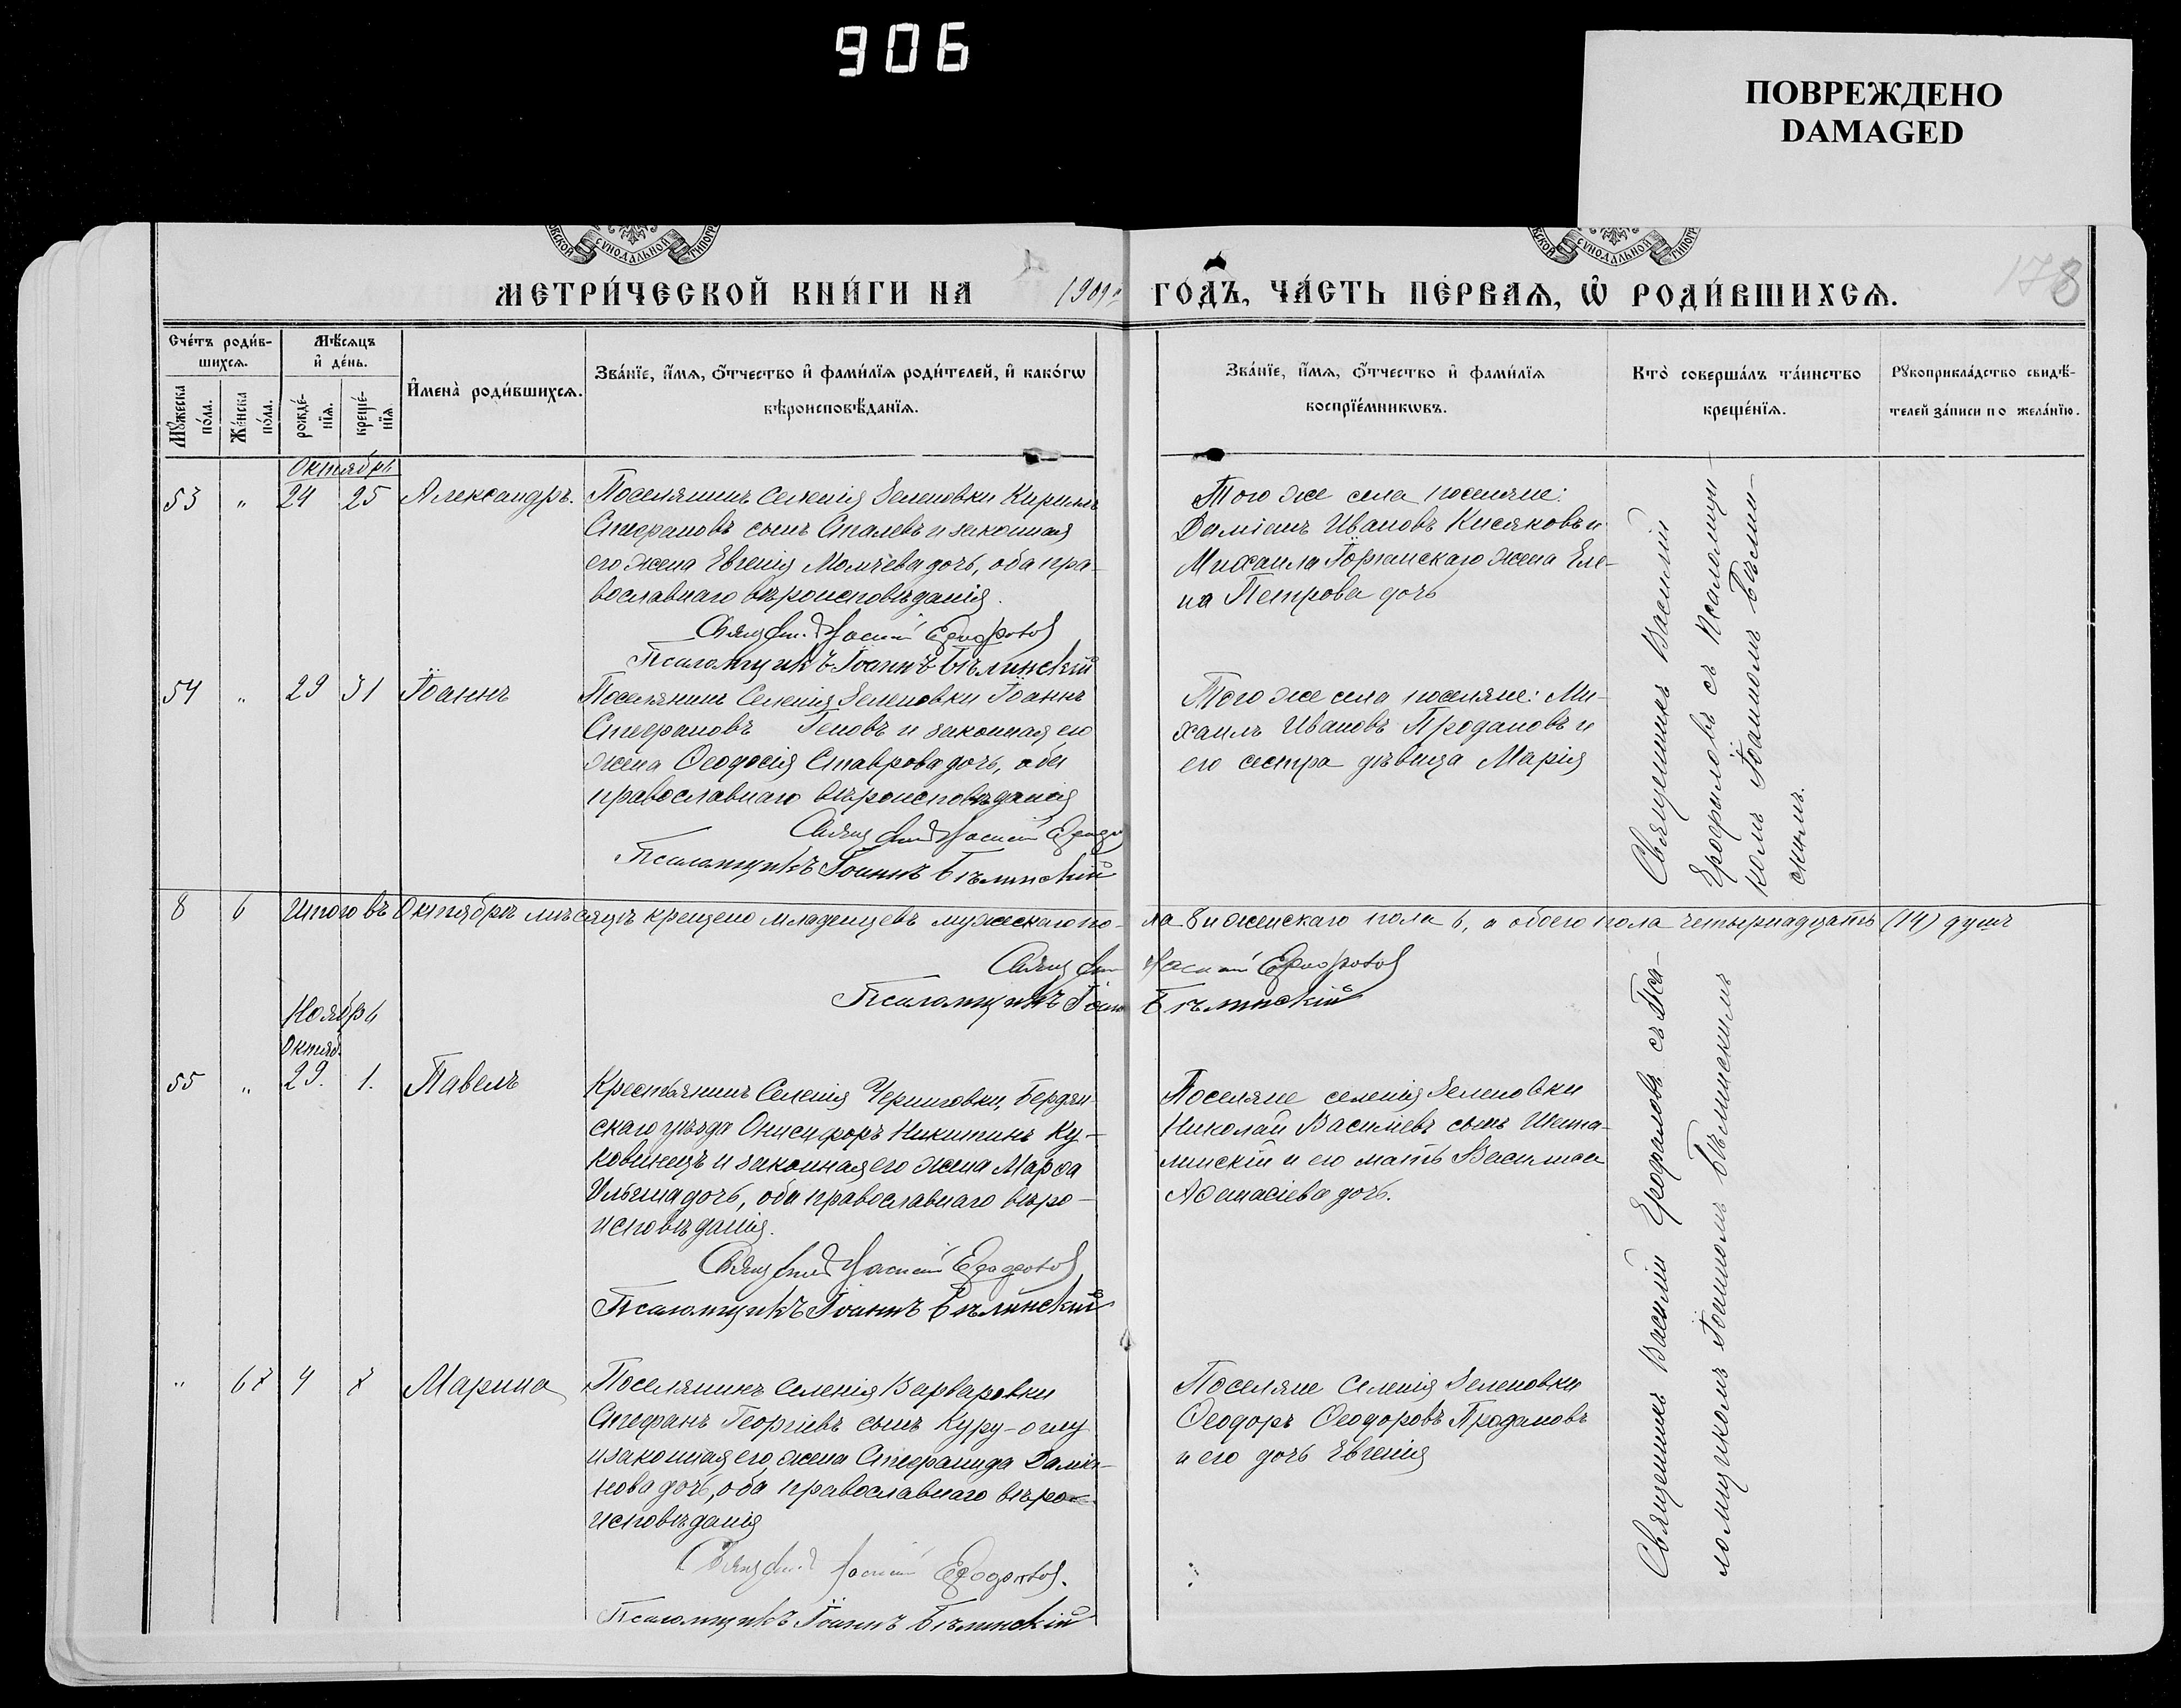 906
ПОВРЕЖДЕНО
DAMAGED
СУНОДАЛЬНОЙ
СУНОДАЛЬНОЙ
МЕТРИ́ЧЕСКОЙ КНИ́ГИ НА 1901 ГО́ДЪ, ЧА́СТЬ ПЕ́РВАѦ, Ѽ РОДИ́ВШИХСѦ.
178
Сче́тъ роди́в-
шихсѧ.
Мѣ́сѧцъ
и҆ де́нь.
И҆мена̀ роди́вшихсѧ.
Зва́нїе, и҆́мѧ, ѻ҆́тчество и҆ фами́лїѧ роди́телей, и҆ како́гѡ
вѣроисповѣ́данїѧ.
Зва́нїе, и҆́мѧ, ѻ҆́тчество и҆ фами́лїѧ
воспрїе́мникѡвъ.
Кто̀ соверша́лъ та́инство
креще́нїѧ.
Рꙋкоприкла́дство свидѣ́-
телей за́писи по жела́нїю.
Мꙋ́жеска
по́ла.
Же́нска
по́ла.
рожде́-
нїѧ.
креще́-
нїѧ.
Октябрь
53 " 24 25 Александръ.
Поселянинъ Селенія Зеленовки Кириллъ
Стефановъ сынъ Сталевъ и законная
его жена Евгенія Молчева дочь, оба пра-
вославнаго вѣроисповѣданія.
Священникъ Василій Ерофаловъ
Псаломщикъ Іоаннъ Бѣлинскій
Того же села поселяне:
Даміанъ Ивановъ Кисяковъ и
Михаила Горжанскаго жена Еле-
на Петрова дочь
Священникъ Василій
Ерофаловъ съ Псаломщи-
комъ Іоанномъ Бѣлин-
скимъ.
54 " 29 31 Іоаннъ
Поселянинъ Селенія Зеленовки Іоаннъ
Стефановъ Геновъ и законная его
жена Ѳеодосія Ставрова дочь, оба
православнаго вѣроисповѣданія
Священникъ Василій
Псаломщикъ Іоаннъ Бѣлинскій
Того же села поселяне: Ми-
хаилъ Ивановъ Продановъ и
его сестра дѣвица Марія
8 6 Итого въ Октябрѣ мѣсяцѣ крещено младенцевъ мужескаго по- ла 8 и женскаго пола 6, а обоего пола четырнадцать (14) душъ
Священникъ Василій Ерофаловъ
Псаломщикъ Іоаннъ Бѣлинскій
Ноябрь
Октяб.
55 " 29. 1. Павелъ
Крестьянинъ Селенія Черниговки, Бердян-
скаго уѣзда Онисифоръ Никитинъ Ку-
ковинецъ и законная его жена Марѳа
Ильина дочь, оба православнаго вѣро-
исповѣданія.
Священникъ Василій Ерофаловъ
Псаломщикъ Іоаннъ Бѣлинскій
Поселяне селенія Зеленовки
Николай Васильевъ сынъ Шета-
линскій и его мать Василиса
Аѳанасіева дочь.
Священникъ Василій Ерофаловъ съ Пса-
ломщикомъ Іоанномъ Бѣлинскимъ
" 67 4 7 Марина
Поселянинъ Селенія Варваровки
Стефанъ Георгіевъ сынъ Куру-оглу
и законная его жена Стефанида Даміа-
нова дочь, оба православнаго вѣро-
исповѣданія
Священникъ Василій Ерофаловъ.
Псаломщикъ Іоаннъ Бѣлинскій
Поселяне Селенія Зеленовки
Ѳеодоръ Ѳеодоровъ Продановъ
и его дочь Евгенія